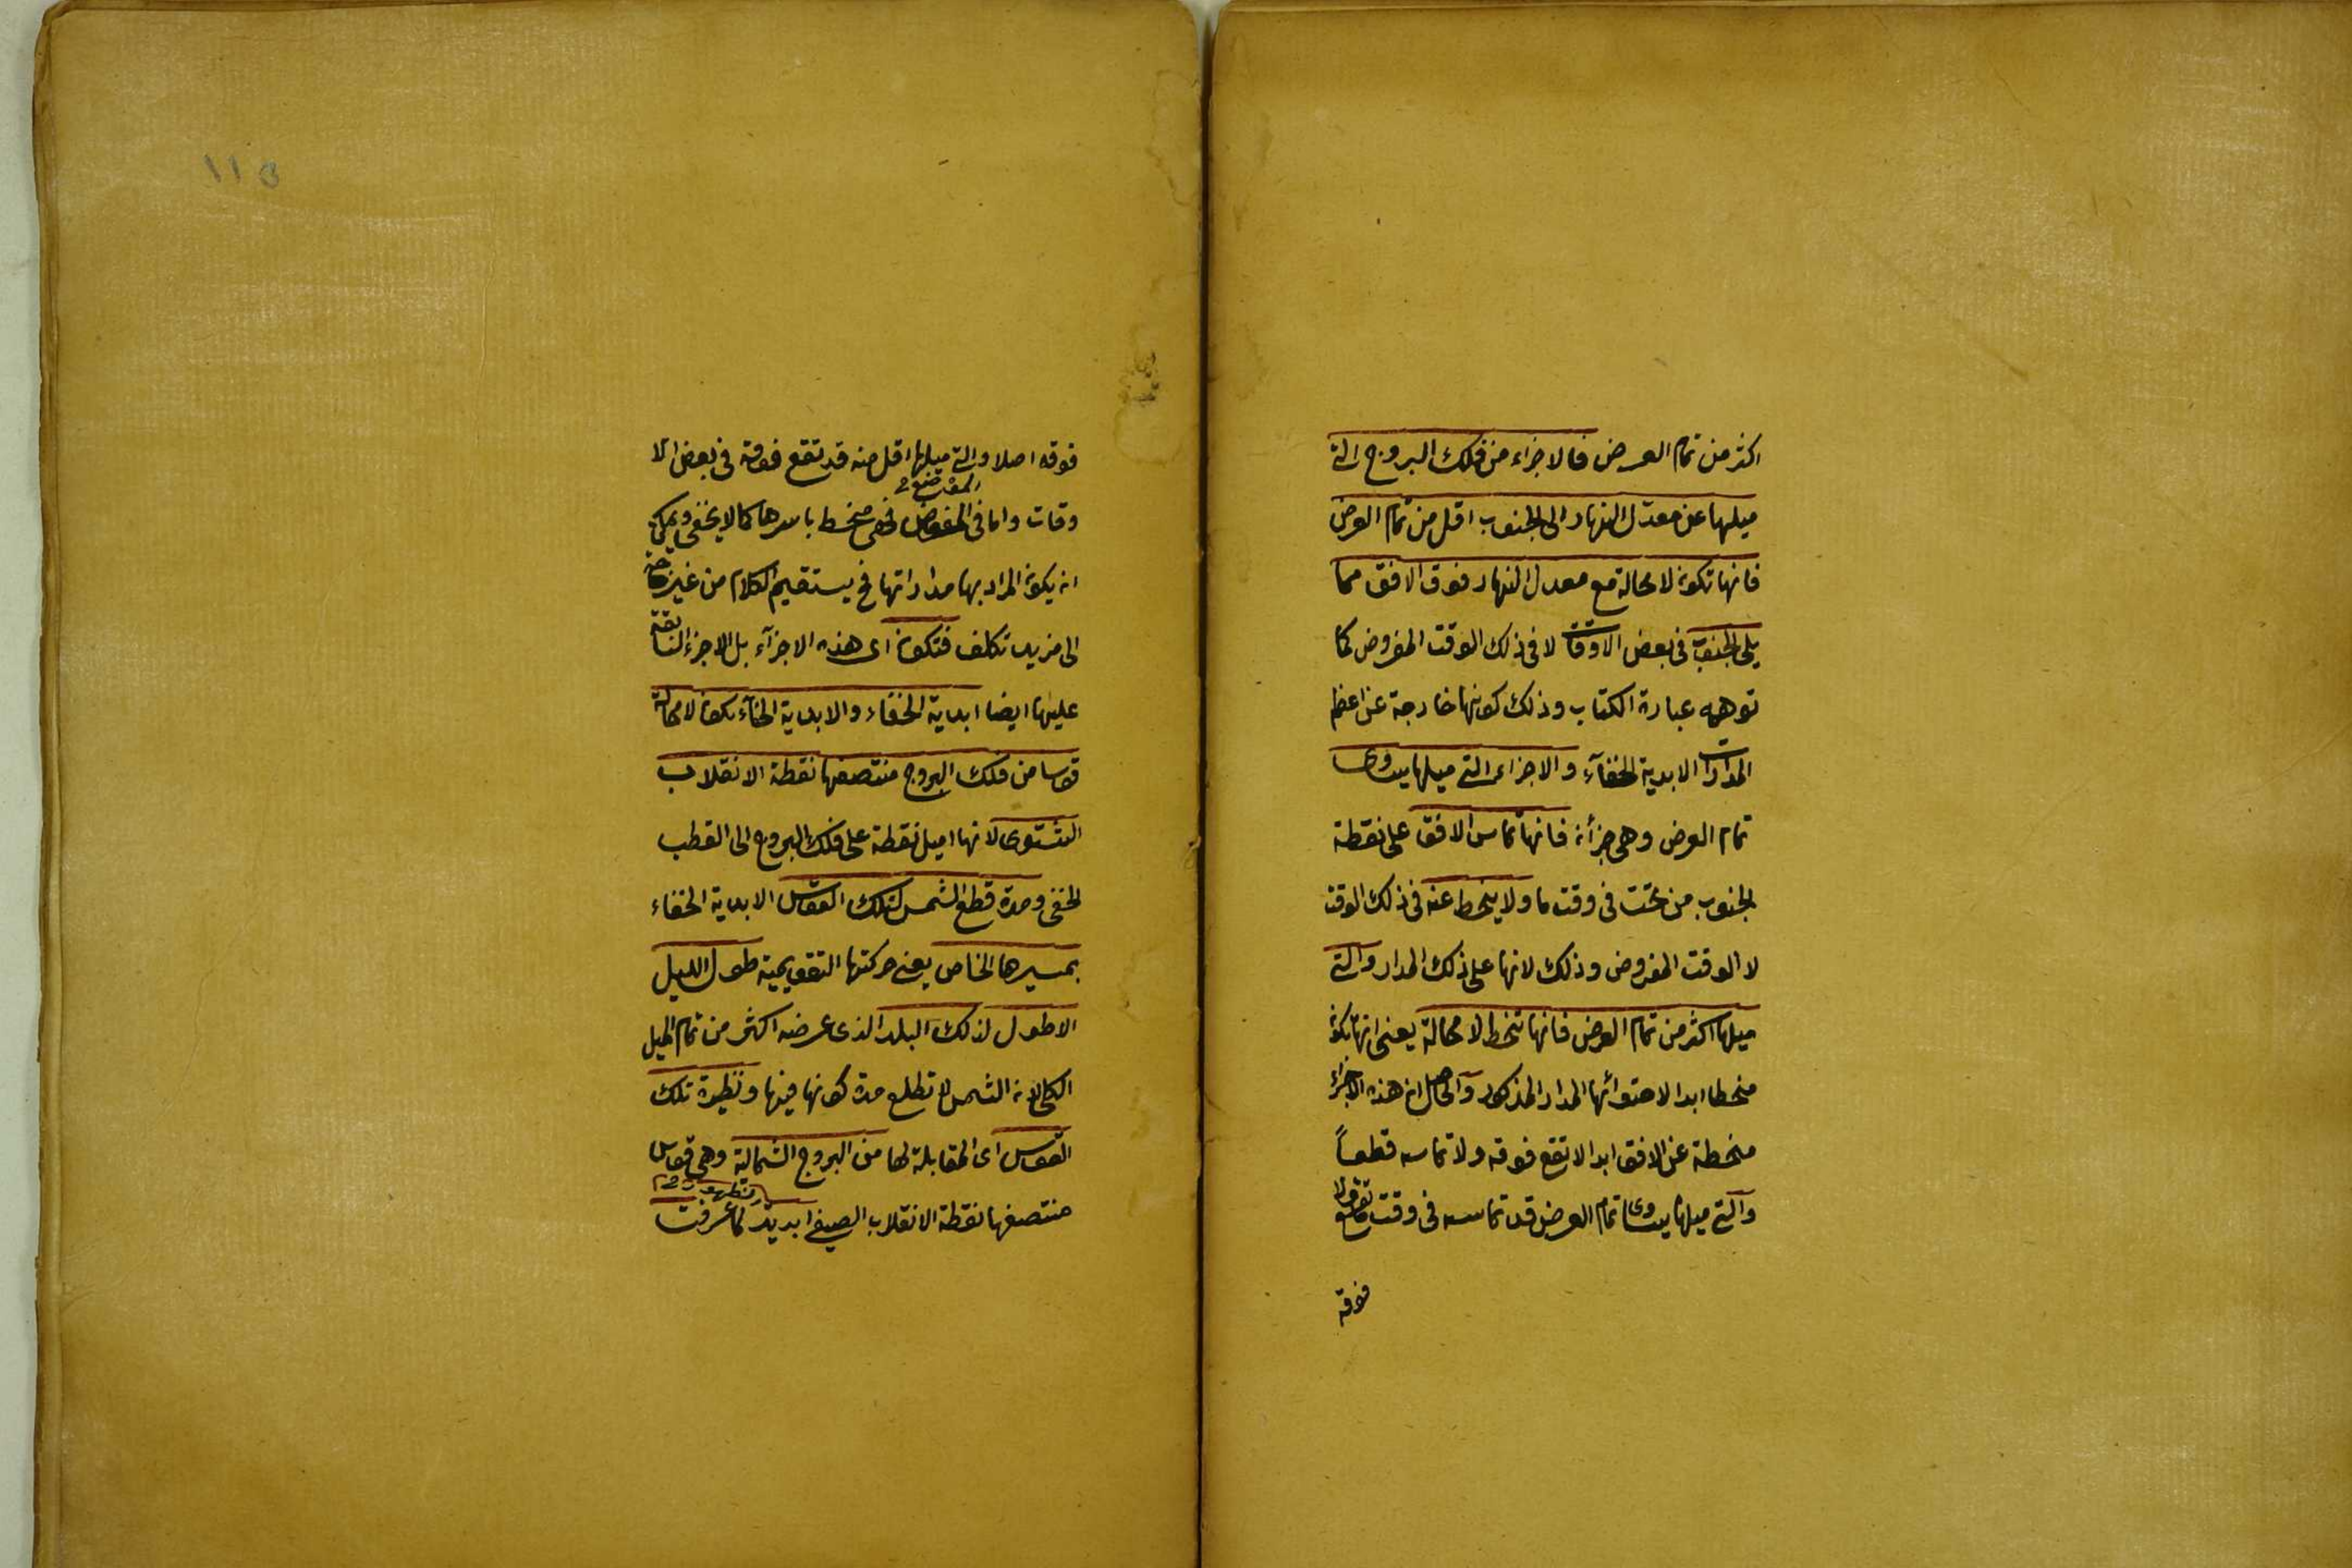 اكثر من تمام العرض فالاجزاء من فلك البروج التى
ميلها عن معدل النهار الى الجنوب اقل من تمام العرض
فانها تكون لا محالة مع معدل النهار فوق الافق مما
يلى الجنوب فى بعض الاوقات لا فى ذلك الوقت المفروض كما
توهمه عبارة الكتاب وذلك كونها خارجة عن اعظم
المدارات الابدية الخفآء والاجزاء التى ميلها يساوى
تمام العرض وهى جزآن فانها تماس الافق على نقطة
الجنوب من تحت فى وقت ما ولا ينحط عنه فى ذلك الوقت
لا الوقت المفروض وذلك لانها على ذلك المدار والتى
ميلها اكثر من تمام العرض فانها تنحط لا محالة يعنى انها تكون
منحطا ابدا لاحتوائها المدار المذكور والحاصل ان هذه الاجزاء
منحطة عن الافق ابدا لا تقع فوقه ولا تماسه قطعاً
والتى ميلها يساوى تمام العرض قد تماسه فى وقت ما ولا تقع
فوقه
١١٥
فوقه اصلا والتى ميلها اقل منه قد تقع فوقه فى بعض الا
وقات واما فى المفروض فهى منحط باسرها كما لا يخفى ويمكن
ان يكون المراد بها مداراتها فح يستقيم الكلام من غير حاجة
الى مزيد تكلف فتكون اى هذه الاجزآء بل الاجزاء السابقة
عليها ايضا ابدية الخفاء والابدية الخفآء تكون لا محالة
قوسا من فلك البروج منتصفها نقطة الانقلاب
الشتوى لانها اميل نقطة على فلك البروج الى القطب
الخفى ومدة قطع الشمس لتلك القوس الابدية الخفاء
بمسيرها الخاص يعنى حركتها التقويمية طول الليل
الاطول لذلك البلد الذى عرضه اكثر من تمام الميل
الكلى لان الشمس لا تطلع مدة كونها فيها ونظيرة تلك
القوس اى المقابلة لها من البروج الشمالية وهى قوس
منتصفها نقطة الانقلاب الصيفى ابدية الظهور لما عرفت